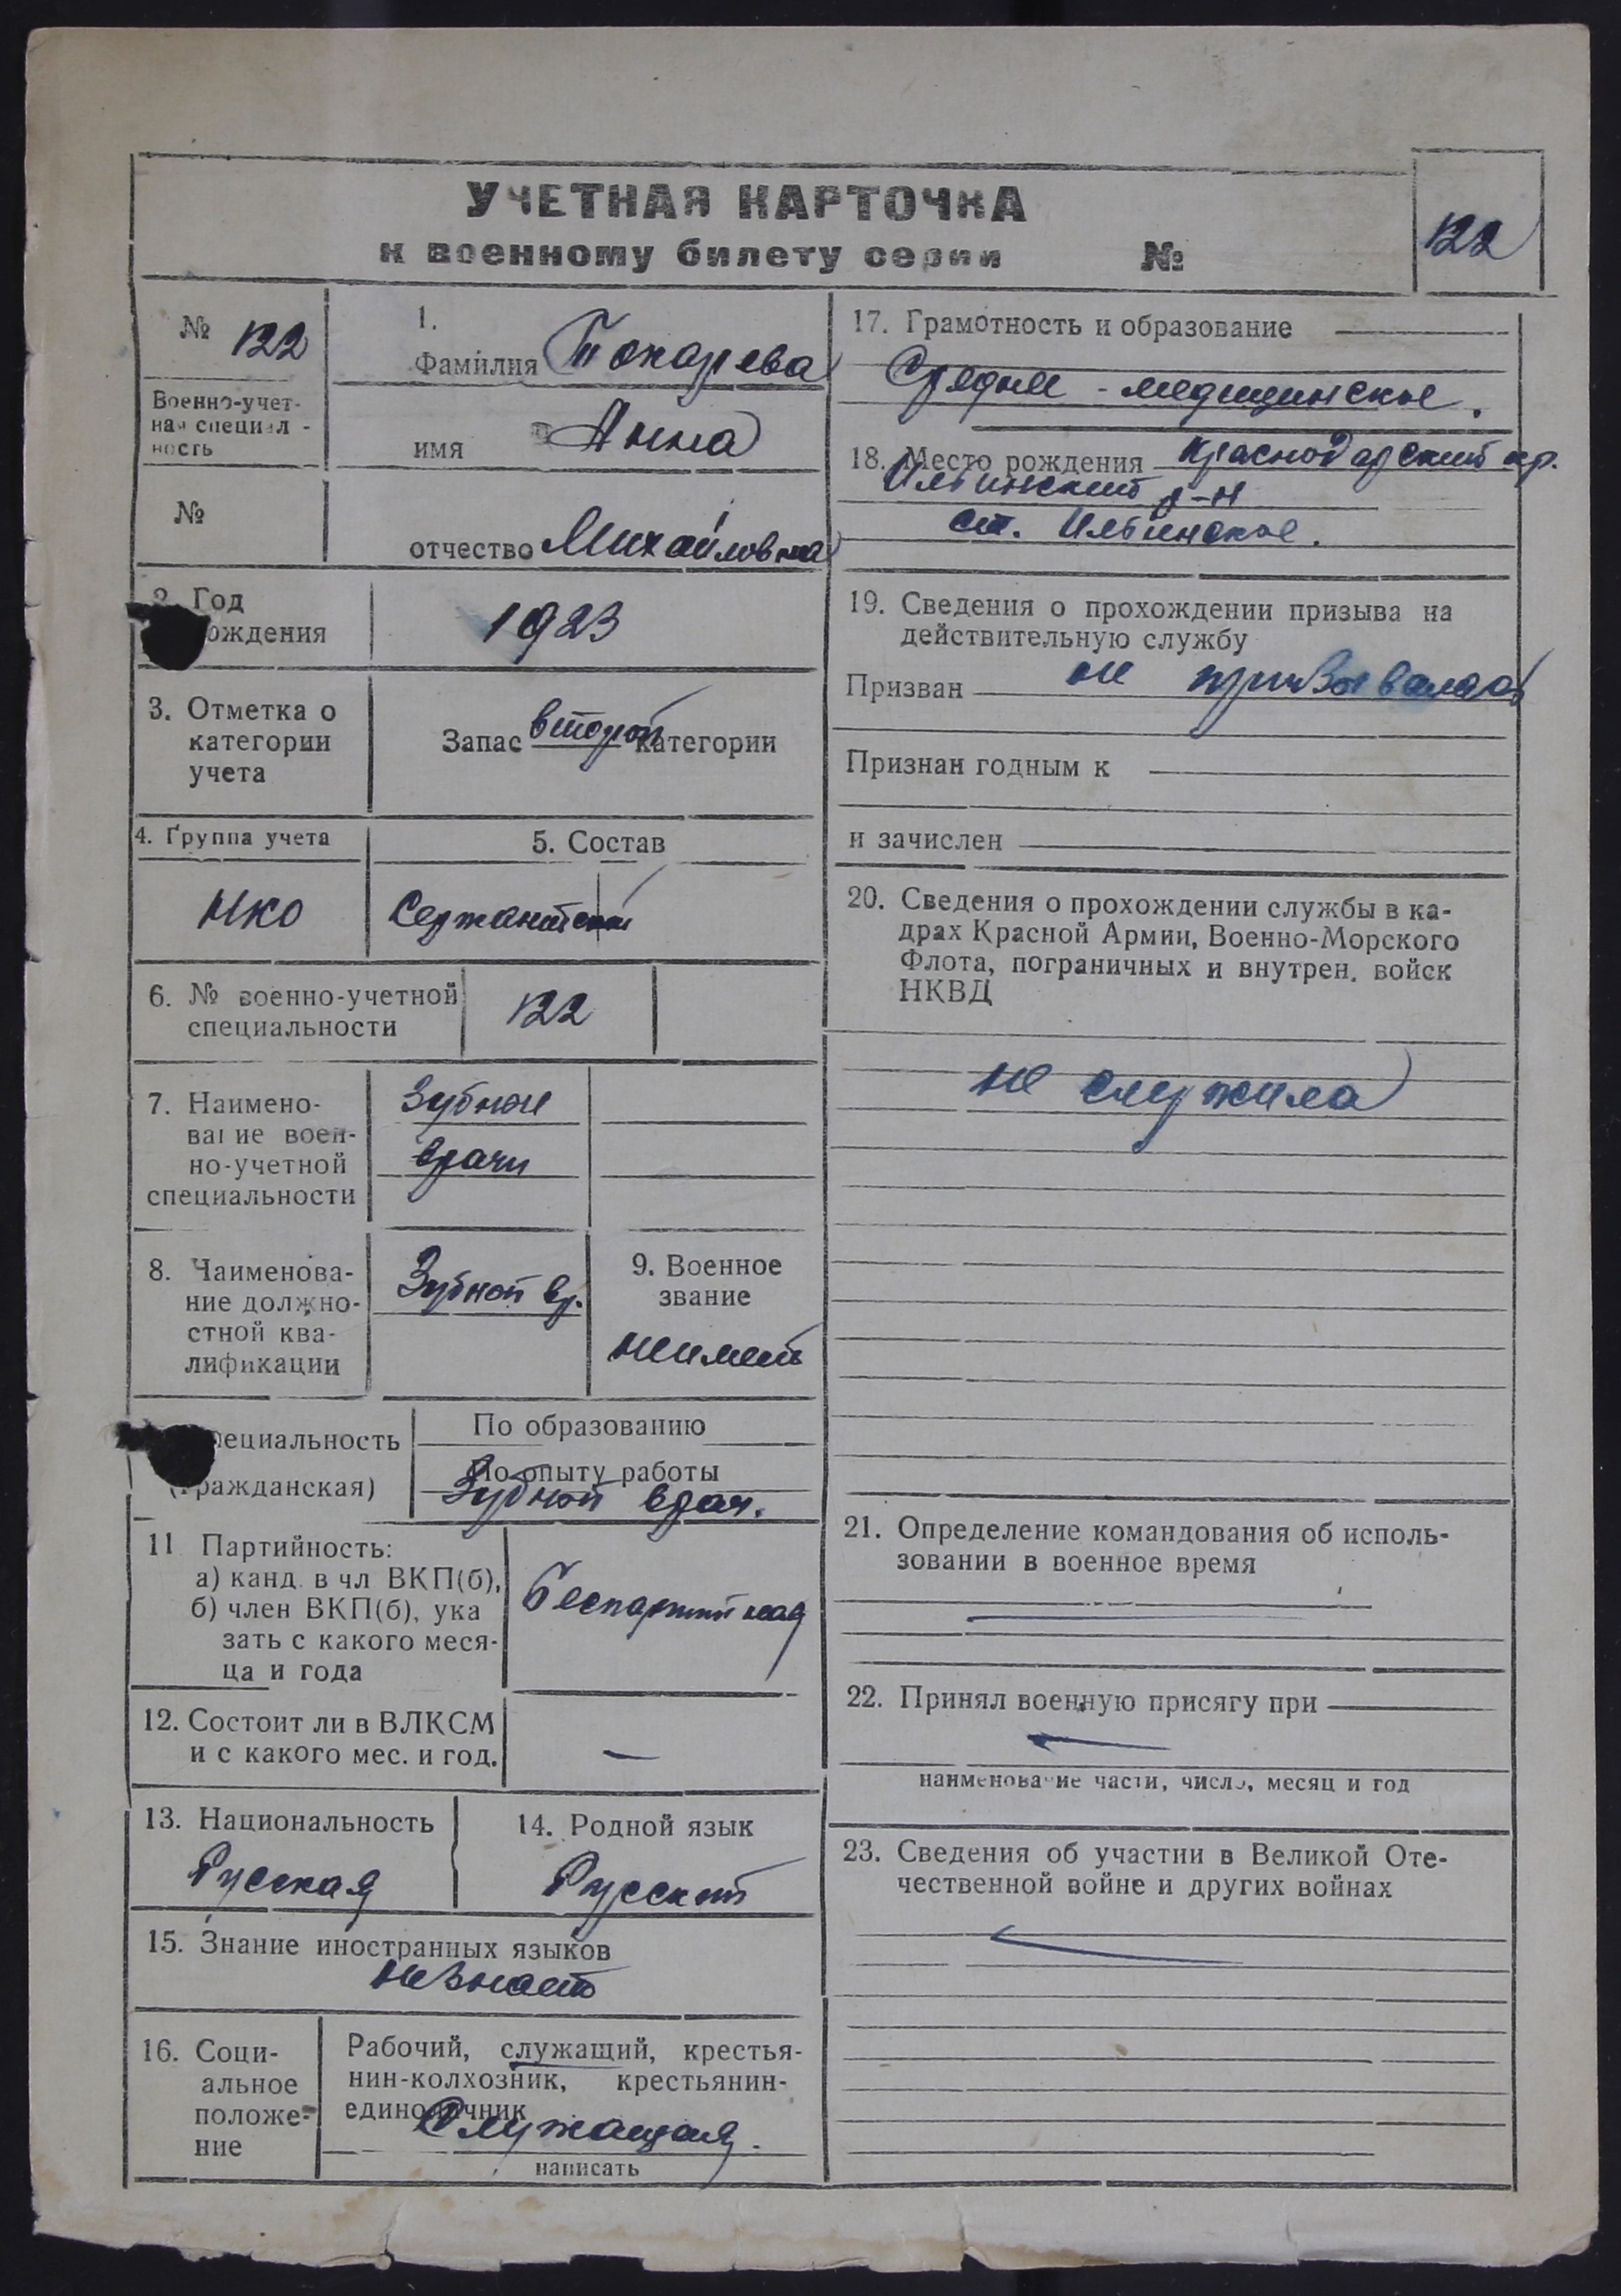 УЧЕТНАЯ КАРТОЧКА
к военному билету серии №
122
№ 122
Военно-учет-
ная специал-
ность
№
1.
Фамилия Токарева
имя Анна
отчество Михайловна
2. Год
рождения
1923
3. Отметка о
категории
учета
Запас второй категории
4. Группа учета
НКО
5. Состав
Сержантский
6. № военно-учетной
специальности
122
7. Наимено-
вание воен-
но-учетной
специальности
Зубные
врачи
8. Наименова-
ние должно-
стной ква-
лификации
Зубной вр.
9. Военное
звание
неимеет
специальность
(гражданская)
По образованию
По опыту работы
Зубной врач.
11 Партийность:
а) канд. в чл ВКП(б),
б) член ВКП(б), ука
зать с какого меся-
ца и года
Беспартийная
12. Состоит ли в ВЛКСМ
и с какого мес. и год.
—
13. Национальность
Русская
14. Родной язык
Русский
15. Знание иностранных языков
незнает
16. Соци-
альное
положе-
ние
Рабочий, служащий, крестья-
нин-колхозник, крестьянин-
единоличник
Служащая.
написать
17. Грамотность и образование
Среднее - медицинское.
18. Место рождения Краснодарский кр.
Ильинский р-н
ст. Ильинское.
19. Сведения о прохождении призыва на
действительную службу
Призван не призывалась
Признан годным к
и зачислен
20. Сведения о прохождении службы в ка-
драх Красной Армии, Военно-Морского
Флота, пограничных и внутрен. войск
НКВД
не служила
21. Определение командования об исполь-
зовании в военное время
22. Принял военную присягу при
наименование части, число, месяц и год
23. Сведения об участии в Великой Оте-
чественной войне и других войнах